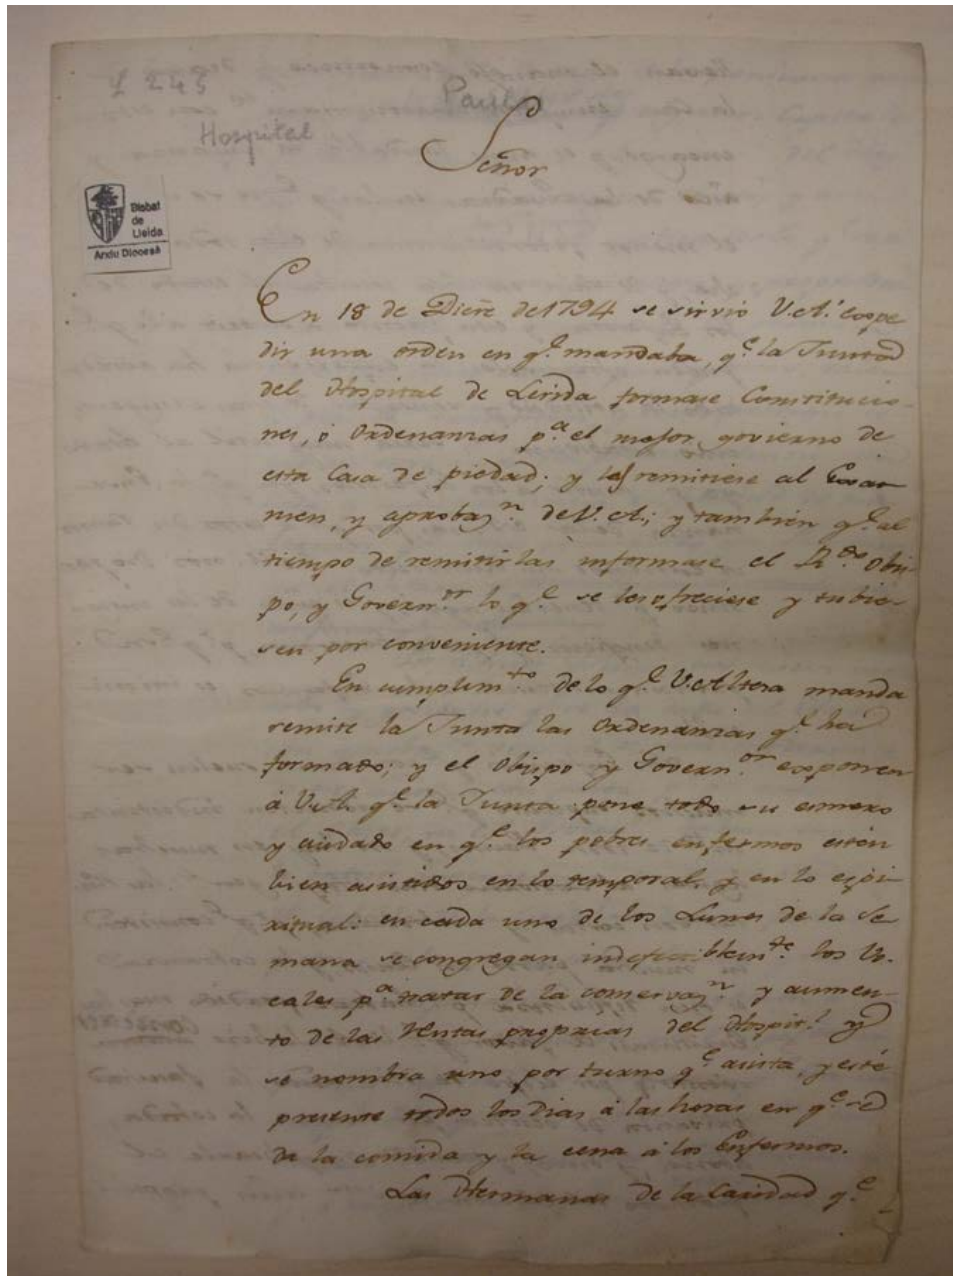 L 243
Paul
Hospital
Señor
Bisbat
de
Lleida
Arxiu Diocesà
En 18 de Dicñe de 1794 se sirvió V.A. espe
dir una orden en q.e mandaba, q.e la Junta
del Hospital de Lerida formase Constitucio-
nes, ó Ordenanzas p.a el mejor govierno de
esta Casa de piedad; y las remitiese al Exa-
men, y aprobaz.n de V.A.; y también q.e al
tiempo de remitirlas informase el R.do Obis-
po, y Govern.or lo q.e se les ofreciese y tubie-
sen por conveniente.
En cumplim.to de lo q.e V. Alteza manda
remite la Junta las Ordenanzas q.e ha
formado; y el Obispo y Govern.or exponen
á V.A. q.e la Junta pone todo su esmero
y cuidado en q.e los pobres enfermos estén
bien asistidos en lo temporal, y en lo espi-
ritual: en cada uno de los Lunes de la Se
mana se congregan indefectiblem.te los Vo-
cales p.a tratar de la conservaz.n y aumen-
to de las Rentas proprias del Hospit.l y
se nombra uno por turno q.e asista, y esté
presente todos los dias á las horas en q.e se
da la comida y la cena á los Enfermos.
Las Hermanas de la Caridad q.e